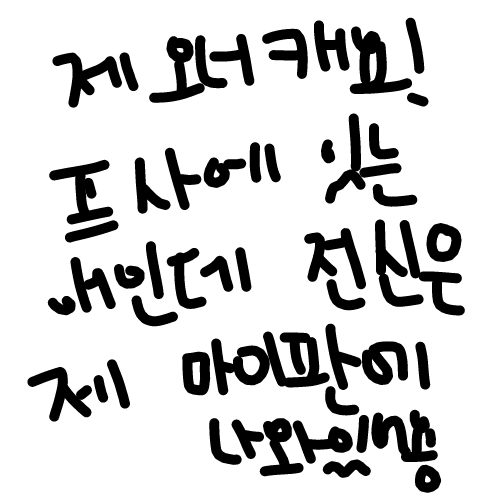 제 오너캐요!
프사에 잇는
애인데 전신은
제 마이판에
나와있숑